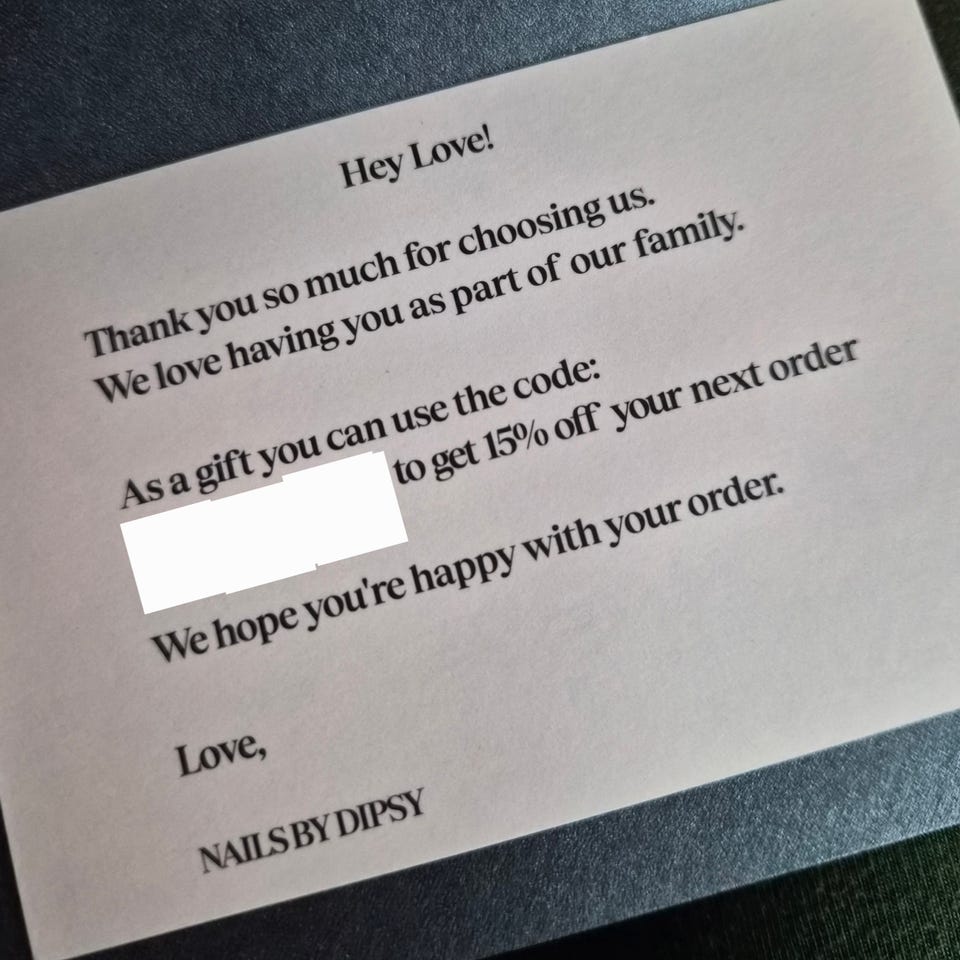 Hey Love!
Thank you so much for choosing us.
We love having you as part of our family.
As a gift you can use the code:
to get 15% off your next order
We hope you're happy with your order.
Love,
NAILS BY DIPSY